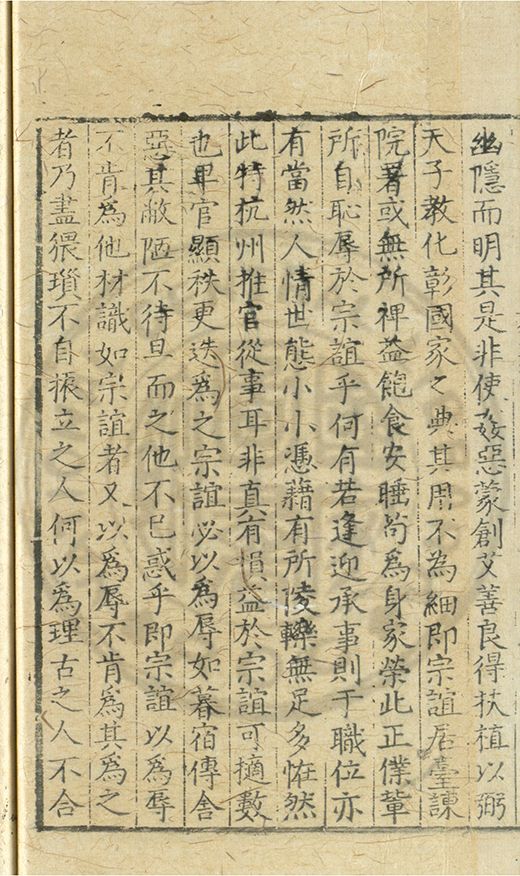 幽隱而明其是非使姦惡蒙創艾善良得扶植以弼
天子教化彰國家之典其用不為細即宗誼居臺諫
院署或無所裨益飽食安睡苟為身家榮此正僕輩
所自恥辱於宗誼乎何有若逢迎承事則于職位亦
有當然人情世態小小憑藉有所陵轢無足多怪然
此特杭州推官從事耳非真有損益於宗誼可擿數
也卑官顯秩更迭為之宗誼必以為辱如暮宿傳舍
惡其敝陋不待旦而之他不已惑乎即宗誼以為辱
不肯為他材識如宗誼者又以為辱不肯為其為之
者乃盡猥瑣不自振立之人何以為理古之人不合